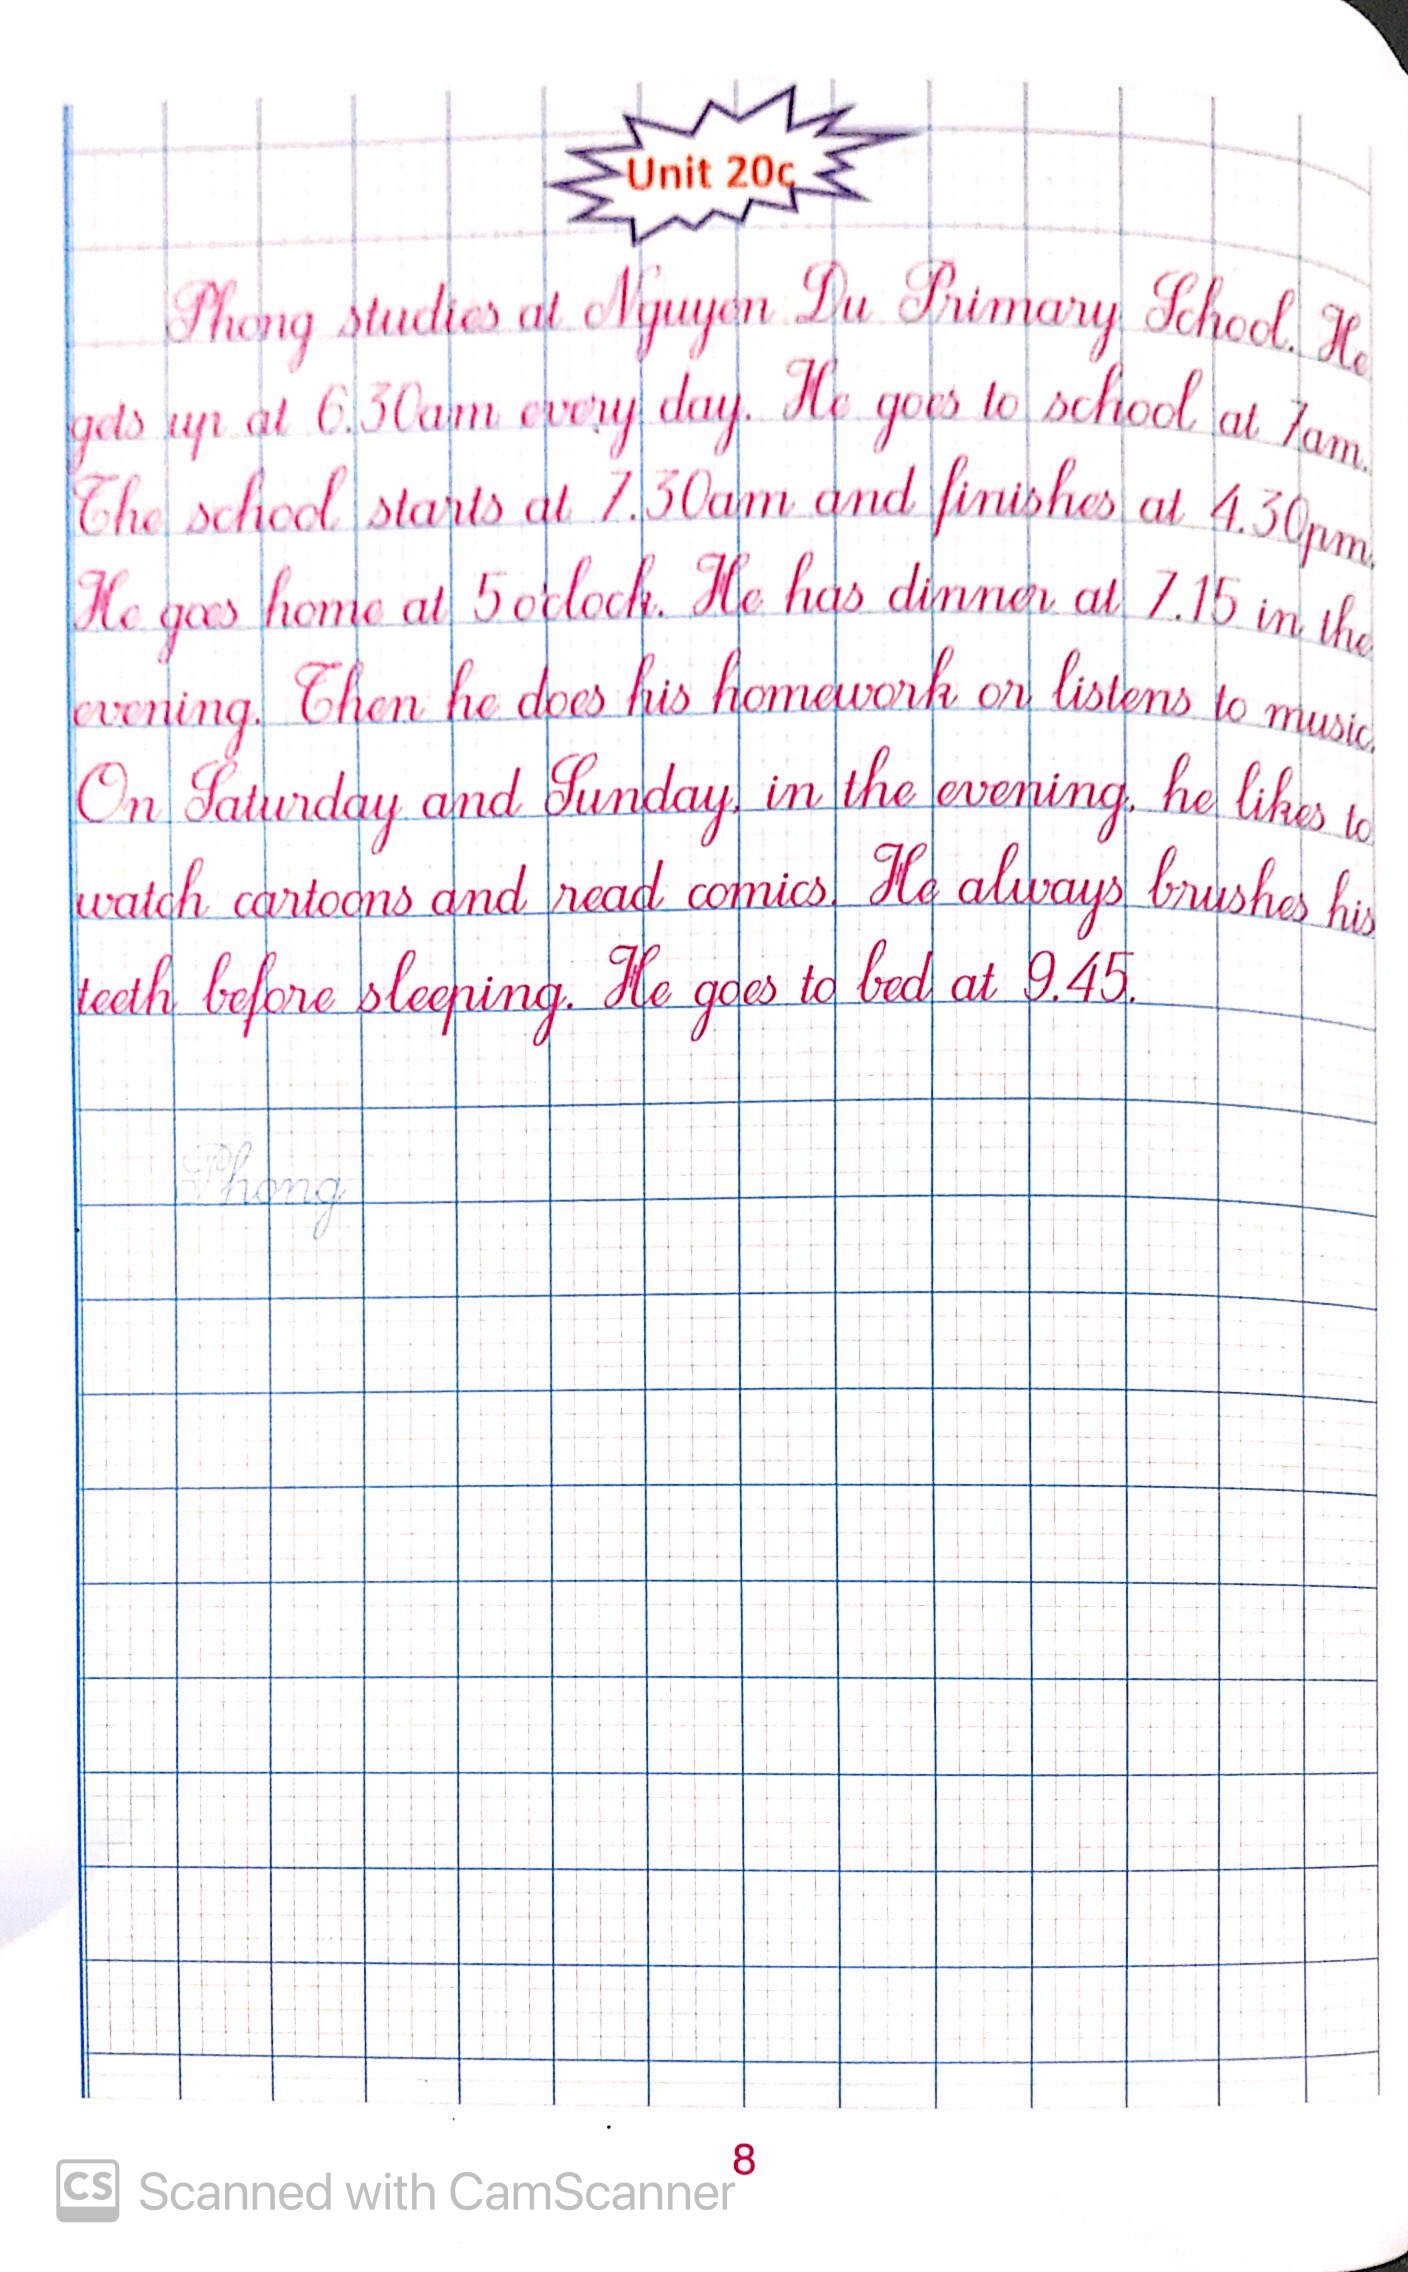 Unit 20c
Phong studies at Nguyen Du Primary School. He
gets up at 6.30am every day. He goes to school at 7am.
The school starts at 7.30am and finishes at 4.30pm.
He goes home at 5 o'clock. He has dinner at 7.15 in the
evening. Then he does his homework or listens to music.
On Saturday and Sunday, in the evening, he likes to
watch cartoons and read comics. He always brushes his
teeth before sleeping. He goes to bed at 9.45.
Phong
8
CS Scanned with CamScanner